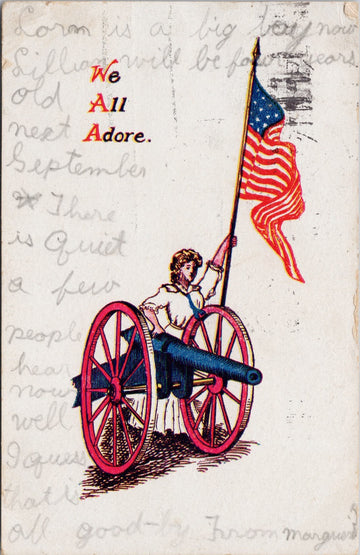 Lorn is a big boy now
Lillian will be four years
old
next
September
We
All
Adore.
* There
is Quiet
a few
people
hear
now
well
I guess
that is
all good-by From Marguerite